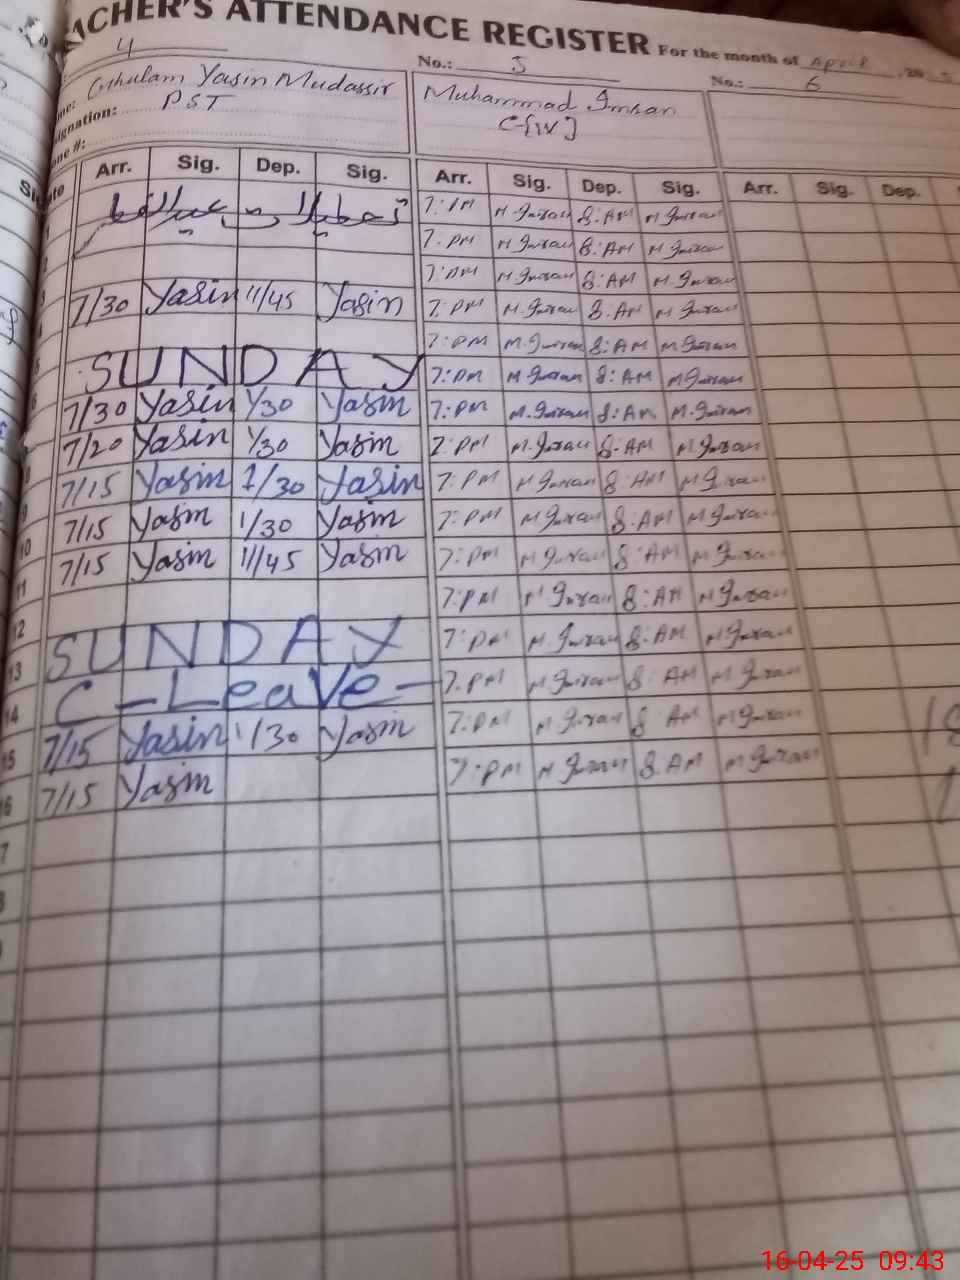 ACHER'S ATTENDANCE REGISTER For the month of April, 20
4 No.: 5 No.: 6
me: Ghulam Yasin Mudassir Muhammad Imran
signation: PST C-[IV]
one #:
Date Arr. Sig. Dep. Sig. Arr. Sig. Dep. Sig. Arr. Sig. Dep.
1 تعطیلات عیدالفطر 7:PM M.Imran 8:AM M Imran
2 7:PM M Imran 8:AM M Imran
3 7:PM M.Imran 8:AM M.Imran
4 7/30 Yasin 11/45 Yasin 7:PM M.Imran 8:AM M Imran
5 7:PM M.Imran 8:AM M Imran
6 SUNDAY 7:PM M Imran 8:AM M Imran
7/30 Yasin 1/30 Yasin 7:PM M.Imran 8:AM M.Imran
8 7/20 Yasin 1/30 Yasin 7:PM M.Imran 8:AM M Imran
9 7/15 Yasin 1/30 Yasin 7:PM M Imran 8:AM M Imran
10 7/15 Yasin 1/30 Yasin 7:PM M Imran 8:AM M Imran
11 7/15 Yasin 11/45 Yasin 7:PM M Imran 8:AM M Imran
12 7:PM M Imran 8:AM M Imran
13 SUNDAY 7:PM M.Imran 8:AM M Imran
14 C-Leave- 7:PM M Imran 8 AM M Imran
15 7/15 Yasin 1/30 Yasin 7:PM M Imran 8 AM M Imran
16 7/15 Yasin 7:PM M Imran 8.AM M Imran
7
16-04-25 09:43